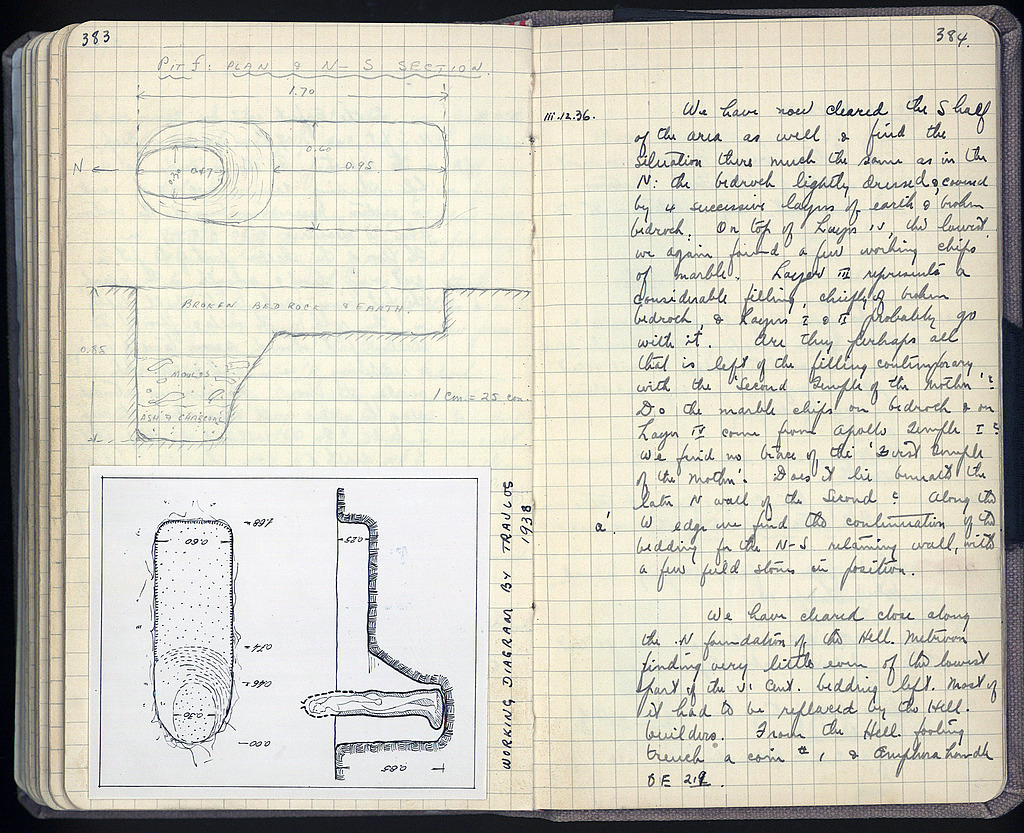 383
Pit f: PLAN & N-S SECTION
1.70
0.60
N
0.30
0.47
0.95
BROKEN BEDROCK & EARTH.
0.85
MOULDS
ASH & CHARCOAL
1 cm = 25 cm.
1.68 =
0.60
0.74 =
0.46 =
0.36
0.00 —
0.25
0.85
WORKING DIAGRAM BY TRAVLOS
1938
384
III.12.36. We have now cleared the S half
of the area as well & find the
situation there much the same as in the
N: the bedrock lightly dressed & covered
by 4 successive layers of earth & broken
bedrock. On top of Layer IV, the lowest,
we again found a few working chips
of marble. Layer III represents a
considerable filling, chiefly of broken
bedrock, & Layers I & II probably go
with it. Are they perhaps all
that is left of the filling contemporary
with the 'Second Temple of the Mother'?
Do the marble chips on bedrock & on
Layer IV come from Apollo Temple I?
We find no trace of the 'First Temple
of the Mother'. Does it lie beneath the
later N wall of the Second? Along the
a' W edge we find the continuation of the
bedding for the N-S retaining wall, with
a few field stones in position.
We have cleared close along
the N foundation of the Hell. Metroon
finding very little even of the lowest
part of the VI cent. bedding left. Most of
it had to be replaced by the Hell.
builders. From the Hell. footing
trench a coin # 1, & Amphora handle